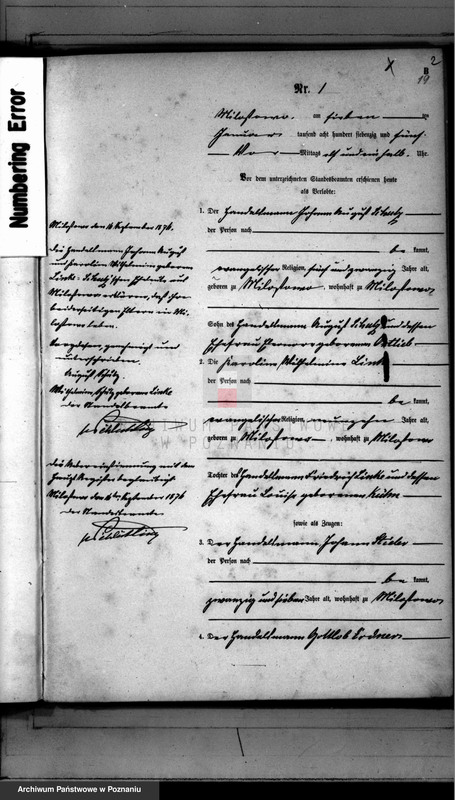 Numbering Error
2
B
19
Nr. 1
Milostowo, am sieben
Januar tausend acht hundert siebenzig und fünf
Vor Mittags elf und ein halb Uhr.
Vor dem unterzeichneten Standesbeamten erschienen heute
als Verlobte:
1. Der Handelsmann Johann August
der Person nach
be kannt,
evangelischer Religion, fünf und zwanzig Jahre alt,
geboren zu Milostowo, wohnhaft zu Milostowo
Sohn des Handelsmann August und dessen
Ehefrau geborenen
2. Die Karoline Wilhelmine Linke
der Person nach
be kannt,
evangelischer Religion, neunzehn Jahre alt,
geboren zu Milostowo, wohnhaft zu Milostowo
Tochter des Handelsmann Friedrich Linke und dessen
Ehefrau Louise geborenen
sowie als Zeugen:
3. Der Handelsmann Johann
der Person nach
be kannt,
zwanzig und sieben Jahre alt, wohnhaft zu Milostowo
4. Der Handelsmann Gottlob
Milostowo den 16 September 1876.
Die Handelsmann Johann August
und Karoline Wilhelmine geborene
Linke
Milostowo erklären, daß ihre
beiderseitigen Eltern in Mi-
lostowo leben.
Vorgelesen, genehmigt und
unterschrieben
August
Wilhelmine geborene Linke
Der Standesbeamte
Die Uebereinstimmung mit dem
Haupt Register beglaubigt
Milostowo den 16ten September 1876
Der Standesbeamte
ARCHIWUM PAŃSTWOWE
W POZNANIU
Archiwum Państwowe w Poznaniu